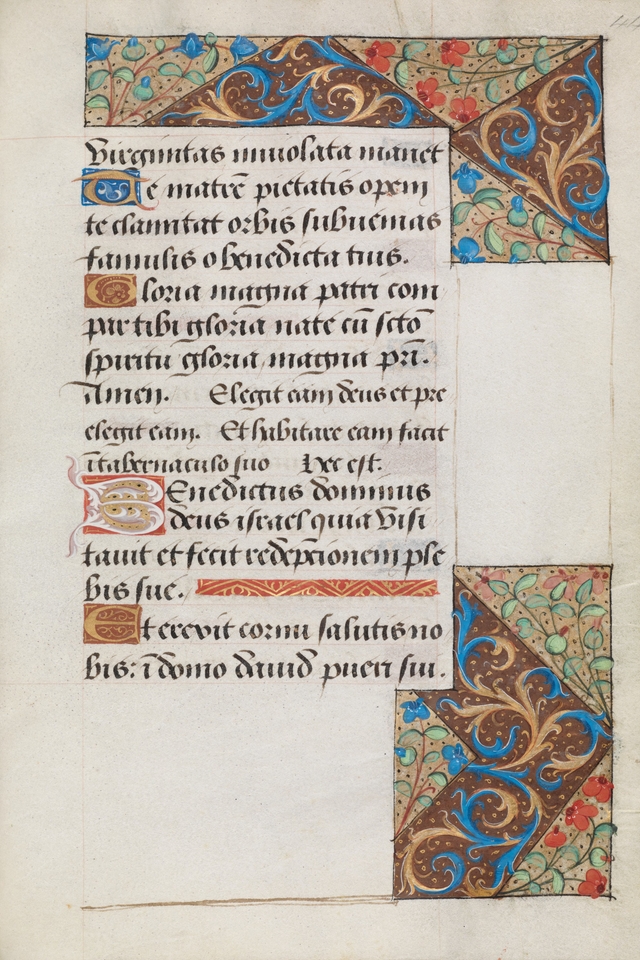 Virginitas inuiolata manet
Te matrē pietatis opem
te clamitat orbis subuenias
famulis o benedicta tuis.
Gloria magna patri com
par tibi gloria nate cū scto
spiritu gloria magna pri.
Amen. Elegit eam deus et pre
elegit eam. Et habitare eam facit
ī tabernaculo suo Hec est.
Benedictus dominus
deus israel quia visi
tauit et fecit redēpcionem ple
bis sue.
Et erexit cornu salutis no
bis: ī domo dauid pueri sui.